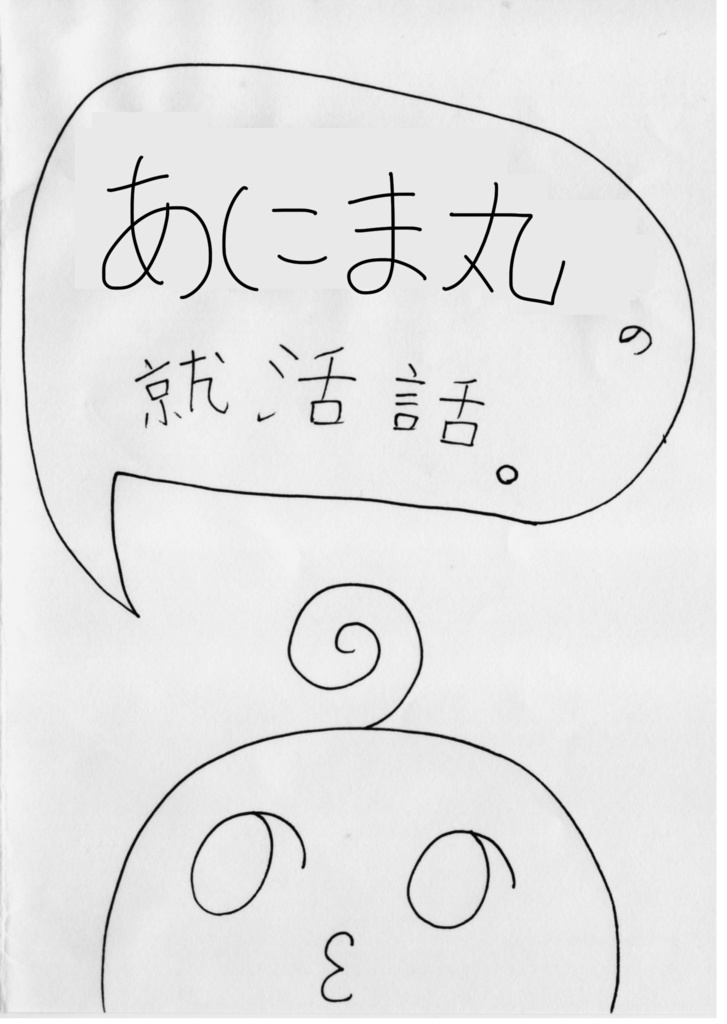 あにま丸
の
就活話。